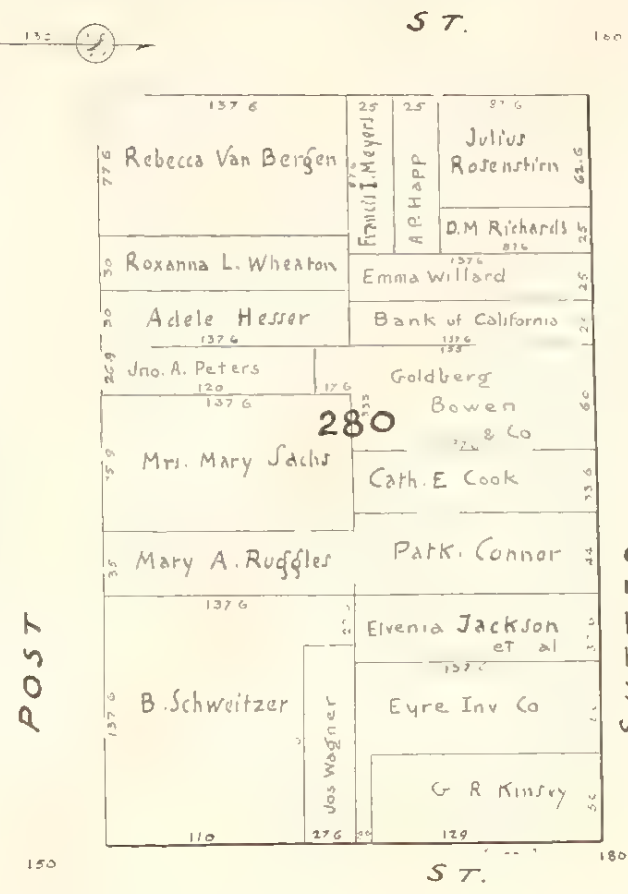 ST.
160
137 6
25
25
87 6
Rebecca Van Bergen
77 6
Francis I. Meyers
A P. Happ
Julius
Rosenstirn
62.6
D. M Richards
25
87 6
Roxanna L. Wheaton
30
137 6
Emma Willard
25
Adele Hesser
30
137 6
Bank of California
137 6
155
Jno. A. Peters
26.9
120
17 6
Goldberg
Bowen
& Co
60
137 6
280
Mrs. Mary Sachs
Cath. E Cook
33 6
Mary A. Ruggles
35
Patk. Connor
44
137 6
Elvenia Jackson
et al
POST
B. Schweitzer
137 6
Jos Wagner
Eyre Inv Co
G R Kinsey
110
27 6
129
150
180
ST.